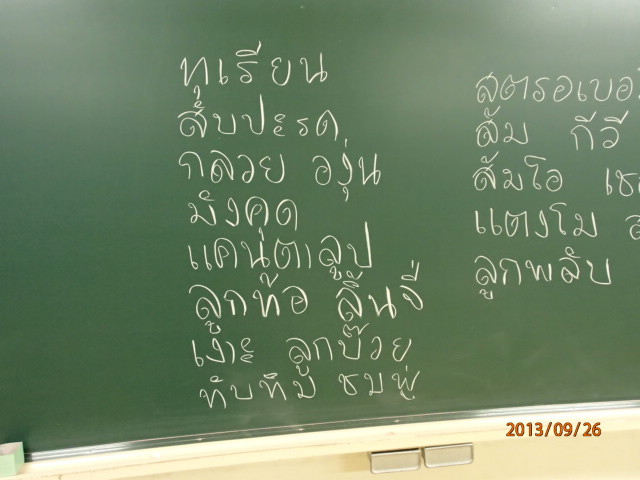 ทุเรียน
สับปะรด
กลวย องุ่น
มังคุด
แคนตาลูป
ลูกท้อ ลิ้นจี่
เงาะ ลูกบ๊วย
ทับทิม ชมพู่
สตรอเบอ
ส้ม กีวี
ส้มโอ
แตงโม
ลูกพลับ
2013/09/26